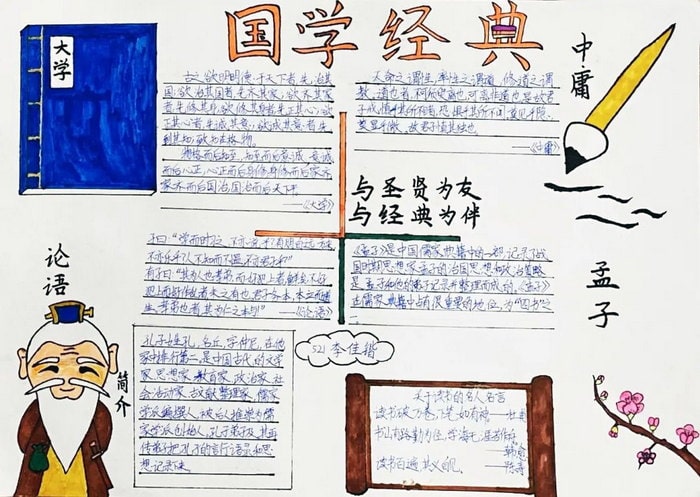 国学经典
大学
古之欲明明德于天下者先治其
国,欲治其国者先齐其家,欲齐其家
者先修其身,欲修其身者先正其心,欲
正其心者先诚其意,欲诚其意者先
到其知,致知在格物。
物格而后知至,知至而后意诚,意诚
而后心正,心正而后身修,身修而后家齐
家齐而后国治,国治而后天下平
——《大学》
中庸
天命之谓性,率性之谓道,修道之谓
教,道也者,不可须臾离也,可离非道也
莫显乎微,故君子慎其独也
——《中庸》
与圣贤为友
与经典为伴
论语
子曰:“学而时习之,不亦说乎?有朋自远方来,
不亦乐乎?人不知而不愠,不亦君子乎”
有子曰“其为人也孝弟,而好犯上者,鲜矣,不好
犯上而好作乱者,未之有也,君子务本,本立而道
生,孝弟也者,其为仁之本与!”——《论语》
孟子
《孟子》是中国儒家典籍中的一部,记录了战
国时期思想家孟子的治国思想和政治策略
是孟子和他的弟子记录并整理而成的,《孟子》
在儒家典籍中占有很重要的地位,为“四书”之
一。
521 李佳锴
简介
孔子姓孔,名丘,字仲尼,在他
家中排行第二,是中国古代的文学
家,思想家,教育家,政治家,社
会活动家,古文献整理家,儒家
学派创始人,孔子弟子及其再
传弟子把孔子的言行语录和思
想记录下来
关于读书的名人名言
读书破万卷,下笔如有神——杜甫
书山有路勤为径,学海无涯苦作舟
——韩愈
读书百遍,其义自见。——陈寿